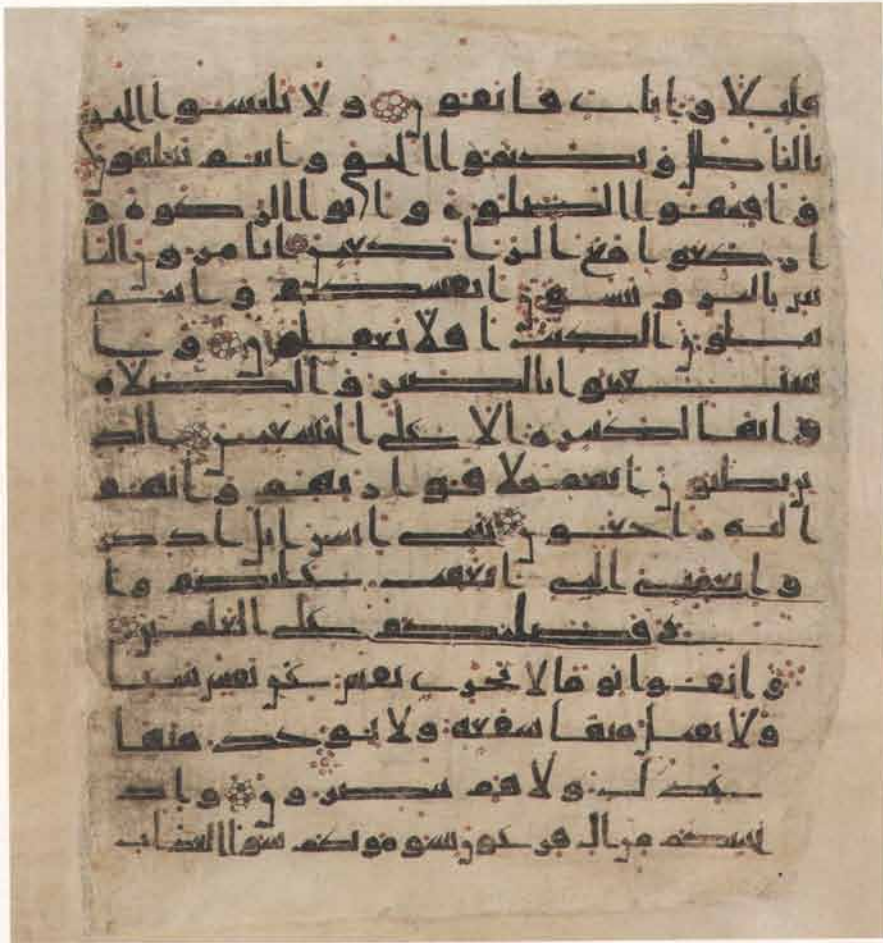 قليلا واياي فاتقون ولا تلبسوا الحق
بالباطل وتكتموا الحق وانتم تعلمون
واقيموا الصلوة واتوا الزكوة و
اركعوا مع الراكعين اتامرون النا
س بالبر وتنسون انفسكم وانتم
تتلون الكتب افلا تعقلون وا
ستعينوا بالصبر والصلاة
وانها لكبيرة الا على الخشعين الذ
ين يظنون انهم ملاقوا ربهم وانهم
اليه راجعون يبني اسرايل اذكر
وا نعمتي التي انعمت عليكم وا
ني فضلتكم على العلمين
واتقوا يوما لا تجزي نفس عن نفس شيا
ولا يقبل منها شفعة ولا يوخذ منها
عدل ولا هم ينصرون واذ
نجينكم من ال فرعون يسومونكم سوا العذاب